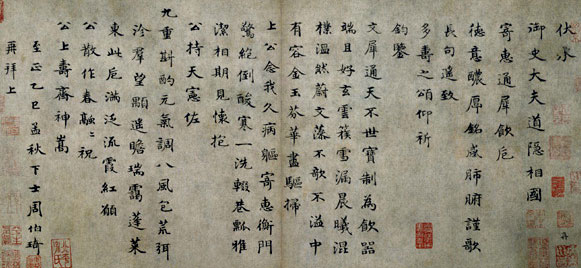 伏承
御史大夫道隱相國
寄惠通犀飲卮
德意醲厚銘感肺腑謹歌
長句遙致
多壽之頌仰祈
鈞鑒
文犀通天不世寶制為飲器
端且好玄雲蔟雪漏晨曦混
樸溫然蔚文藻不歌不溢中
有容金玉芬華盡驅掃
上公念我久病軀寄惠衡門
驚絕倒酸寒一洗輟巷瓢雅
潔相期見懷抱
公持天憲佐
九重斟酌元氣調八風包荒弭
沴羣望顒遣瞻瑞靄蓬萊
東此卮滿泛流霞紅願
公散作春融〻祝
公上壽齊神嵩
至正乙巳孟秋下士周伯琦
再拜上